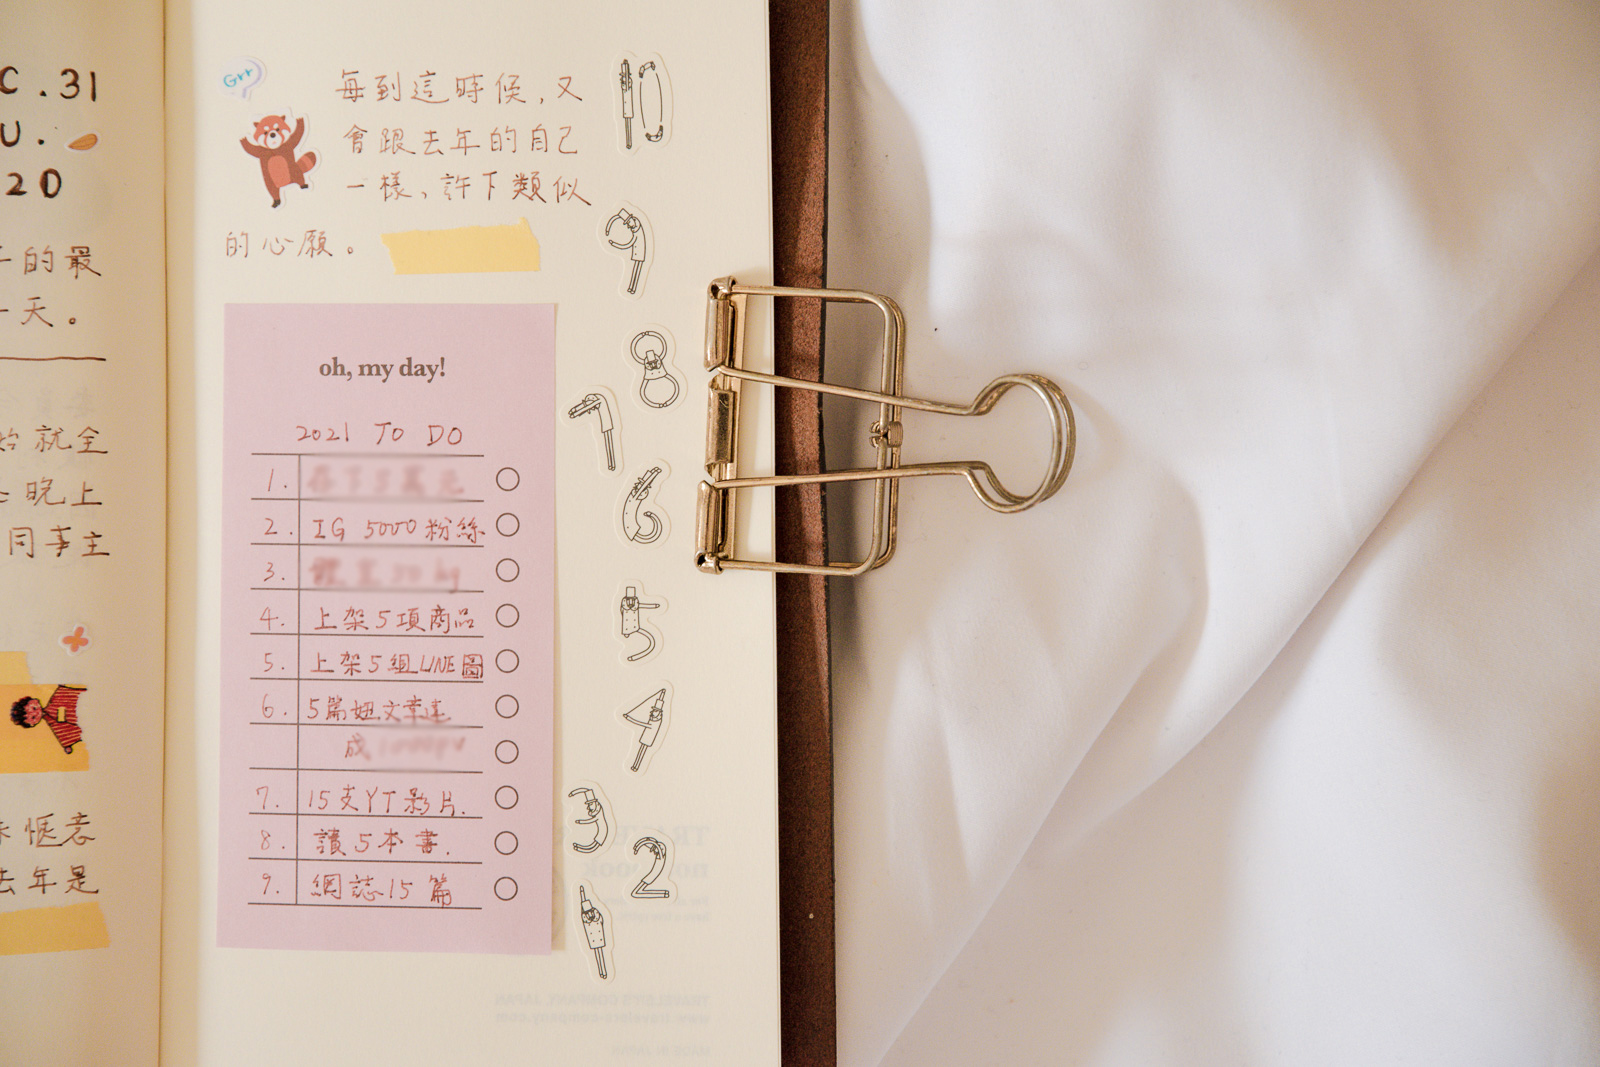 C.31
U.
20
的最
天。
就全
晚上
同事主
愜意
去年是
Grr
每到這時候,又
會跟去年的自己
一樣、許下類似
的心願。
10
9
8
7
6
5
4
3
2
1
oh, my day!
2021 TO DO
1.
2. IG 5000粉絲
3.
4. 上架5項商品
5. 上架5組LINE圖
6. 5篇妞文章達
成
7. 15支YT影片.
8. 讀5本書.
9. 網誌15篇